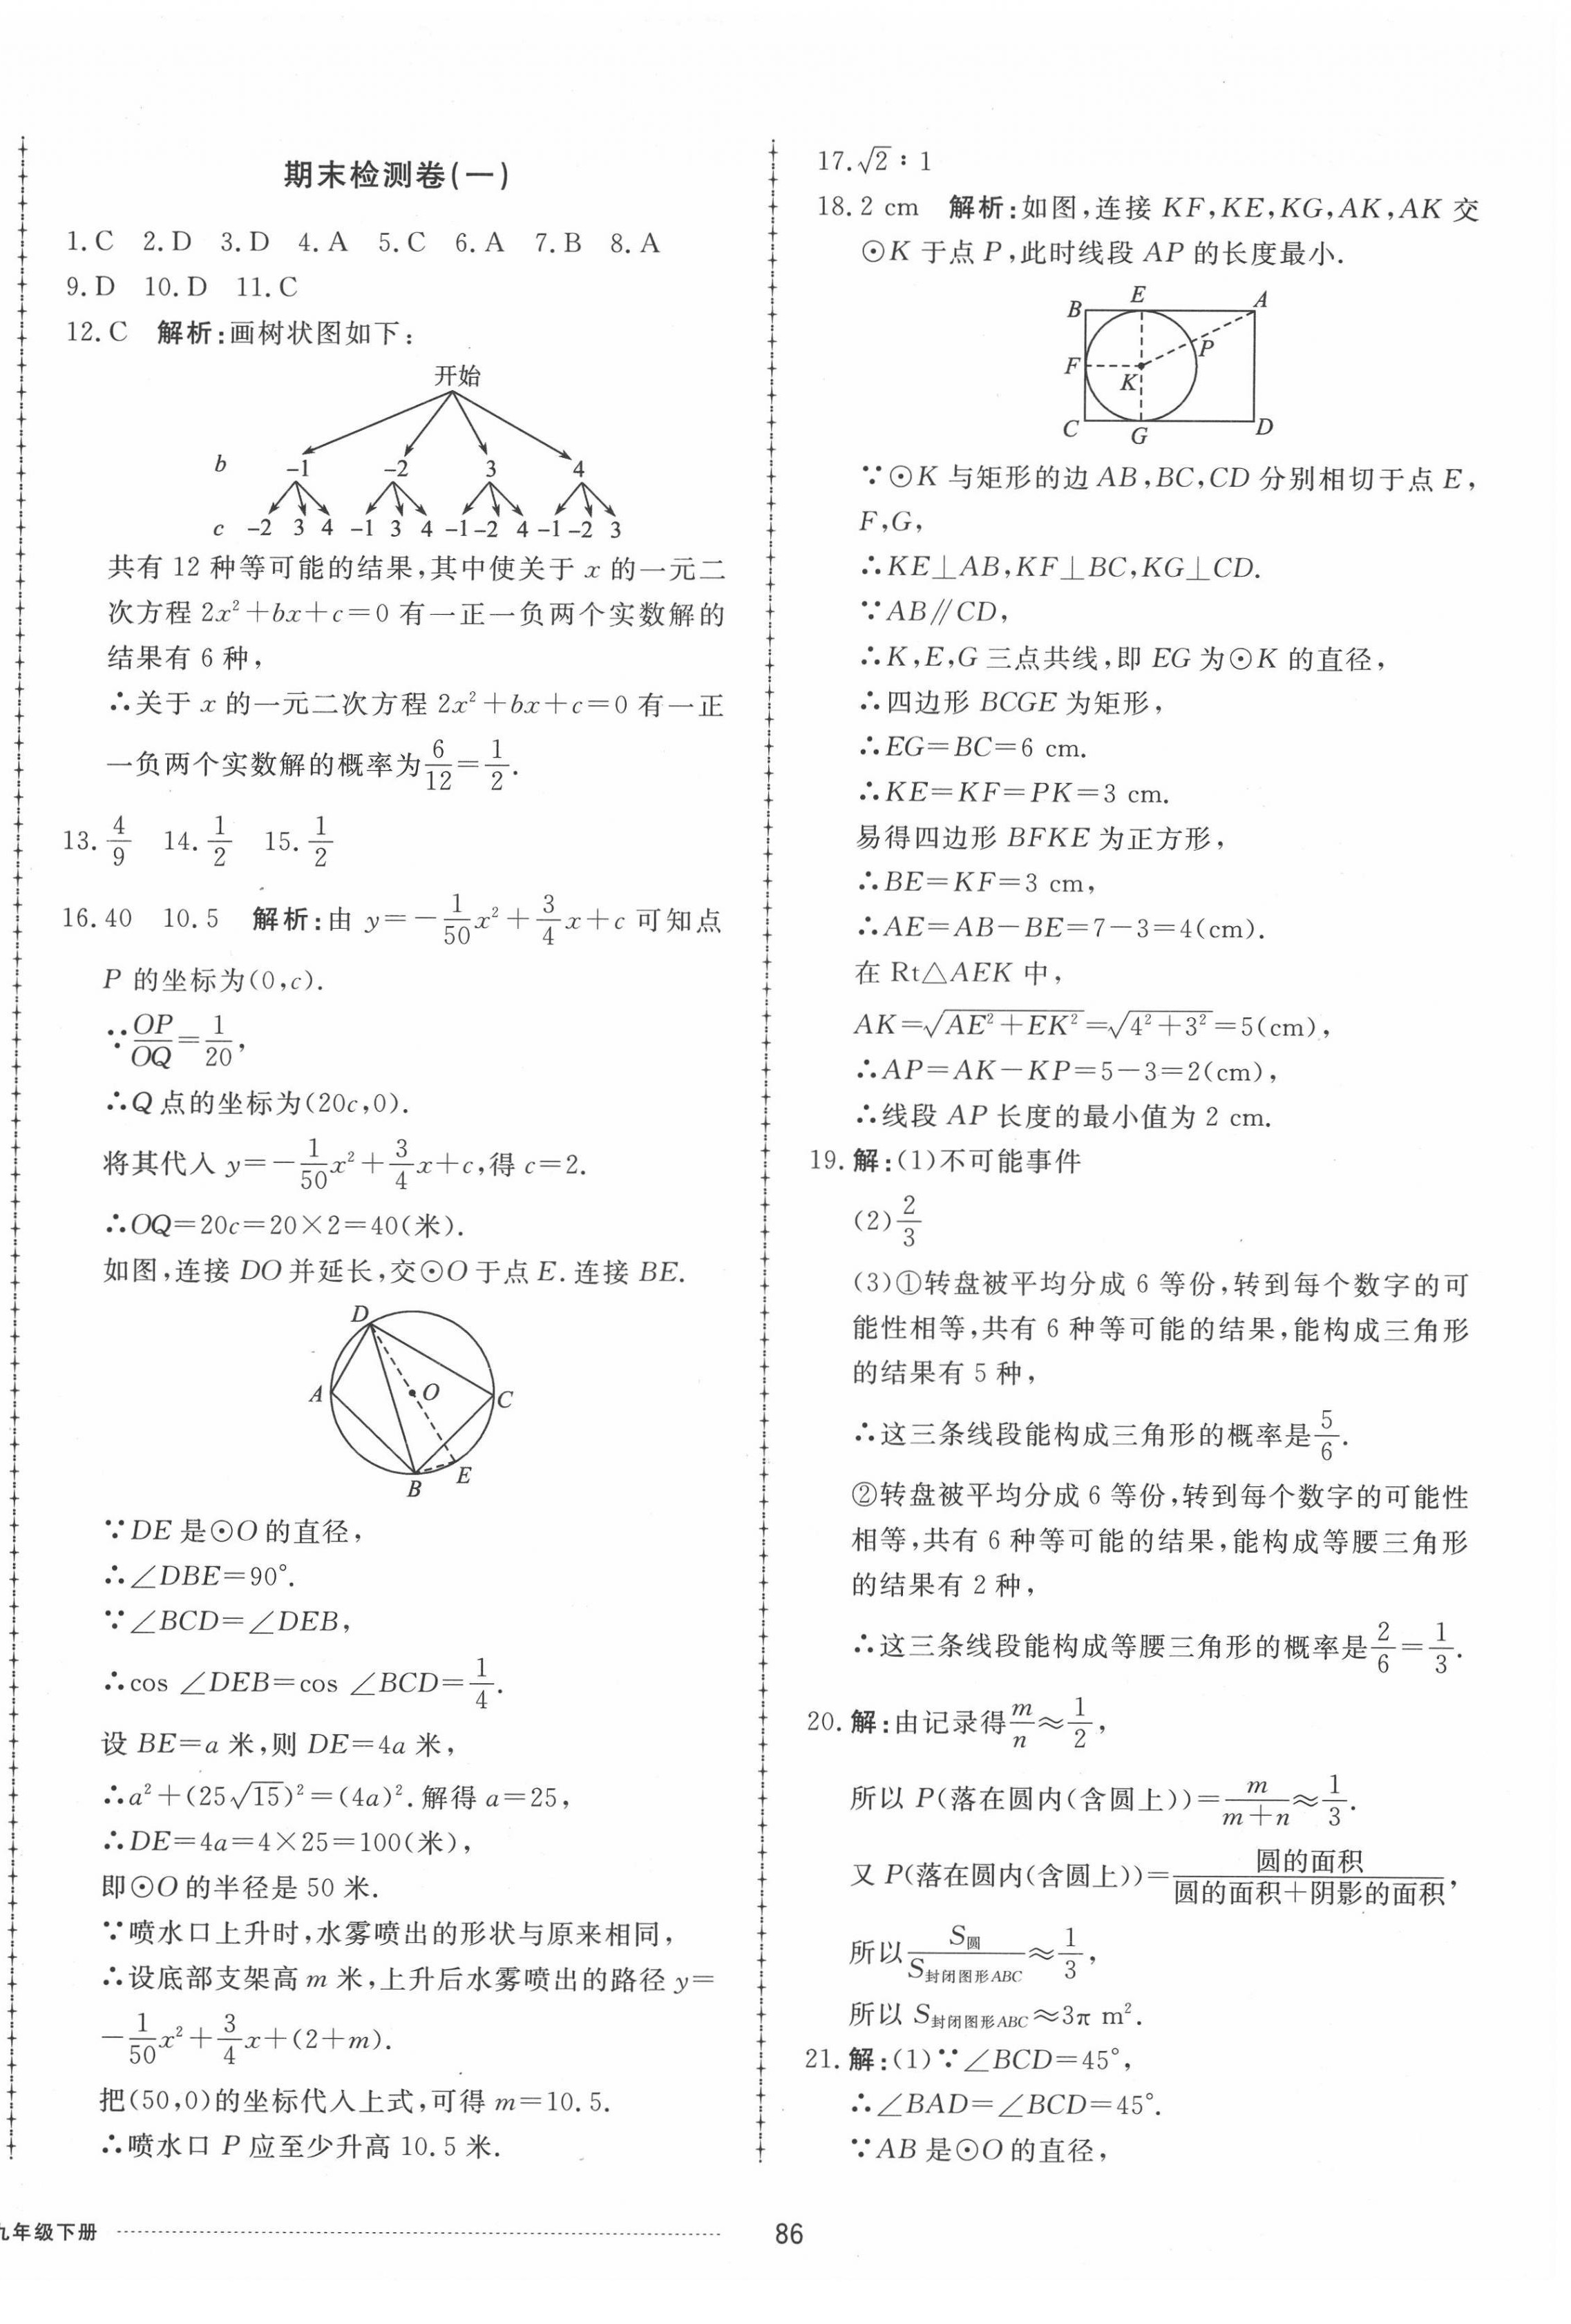 期末检测卷(一)
1.C 2.D 3.D 4.A 5.C 6.A 7.B 8.A
9.D 10.D 11.C
12.C 解析:画树状图如下:
开始
b -1 -2 3 4
c -2 3 4 -1 3 4 -1 -2 4 -1 -2 3
共有 12 种等可能的结果,其中使关于 x 的一元二
次方程 2x²+bx+c=0 有一正一负两个实数解的
结果有 6 种,
∴关于 x 的一元二次方程 2x²+bx+c=0 有一正
一负两个实数解的概率为6/12=1/2.
13. 4/9 14. 1/2 15. 1/2
16.40 10.5 解析:由 y=-1/50x²+3/4x+c 可知点
P 的坐标为(0,c).
∵OP/OQ=1/20,
∴Q 点的坐标为(20c,0).
将其代入 y=-1/50x²+3/4x+c,得 c=2.
∴OQ=20c=20×2=40(米).
如图,连接 DO 并延长,交⊙O 于点 E.连接 BE.
D
A
O
C
B
E
∵DE 是⊙O 的直径,
∴∠DBE=90°.
∵∠BCD=∠DEB,
∴cos ∠DEB=cos ∠BCD=1/4.
设 BE=a 米,则 DE=4a 米,
∴a²+(25√15)²=(4a)².解得 a=25,
∴DE=4a=4×25=100(米),
即⊙O 的半径是 50 米.
∵喷水口上升时,水雾喷出的形状与原来相同,
∴设底部支架高 m 米,上升后水雾喷出的路径 y=
-1/50x²+3/4x+(2+m).
把(50,0)的坐标代入上式,可得 m=10.5.
∴喷水口 P 应至少升高 10.5 米.
17.√2∶1
18.2 cm 解析:如图,连接 KF,KE,KG,AK,AK 交
⊙K 于点 P,此时线段 AP 的长度最小.
B E A
P
F
K
C G D
∵⊙K 与矩形的边 AB,BC,CD 分别相切于点 E,
F,G,
∴KE⊥AB,KF⊥BC,KG⊥CD.
∵AB∥CD,
∴K,E,G 三点共线,即 EG 为⊙K 的直径,
∴四边形 BCGE 为矩形,
∴EG=BC=6 cm.
∴KE=KF=PK=3 cm.
易得四边形 BFKE 为正方形,
∴BE=KF=3 cm,
∴AE=AB-BE=7-3=4(cm).
在 Rt△AEK 中,
AK=√(AE²+EK²)=√(4²+3²)=5(cm),
∴AP=AK-KP=5-3=2(cm),
∴线段 AP 长度的最小值为 2 cm.
19.解:(1)不可能事件
(2)2/3
(3)①转盘被平均分成 6 等份,转到每个数字的可
能性相等,共有 6 种等可能的结果,能构成三角形
的结果有 5 种,
∴这三条线段能构成三角形的概率是5/6.
②转盘被平均分成 6 等份,转到每个数字的可能性
相等,共有 6 种等可能的结果,能构成等腰三角形
的结果有 2 种,
∴这三条线段能构成等腰三角形的概率是2/6=1/3.
20.解:由记录得m/n≈1/2,
所以 P(落在圆内(含圆上))=m/(m+n)≈1/3.
又 P(落在圆内(含圆上))=圆的面积/(圆的面积+阴影的面积),
所以S圆/S封闭图形ABC≈1/3,
所以 S封闭图形ABC≈3π m².
21.解:(1)∵∠BCD=45°,
∴∠BAD=∠BCD=45°.
∵AB 是⊙O 的直径,
九年级下册
86